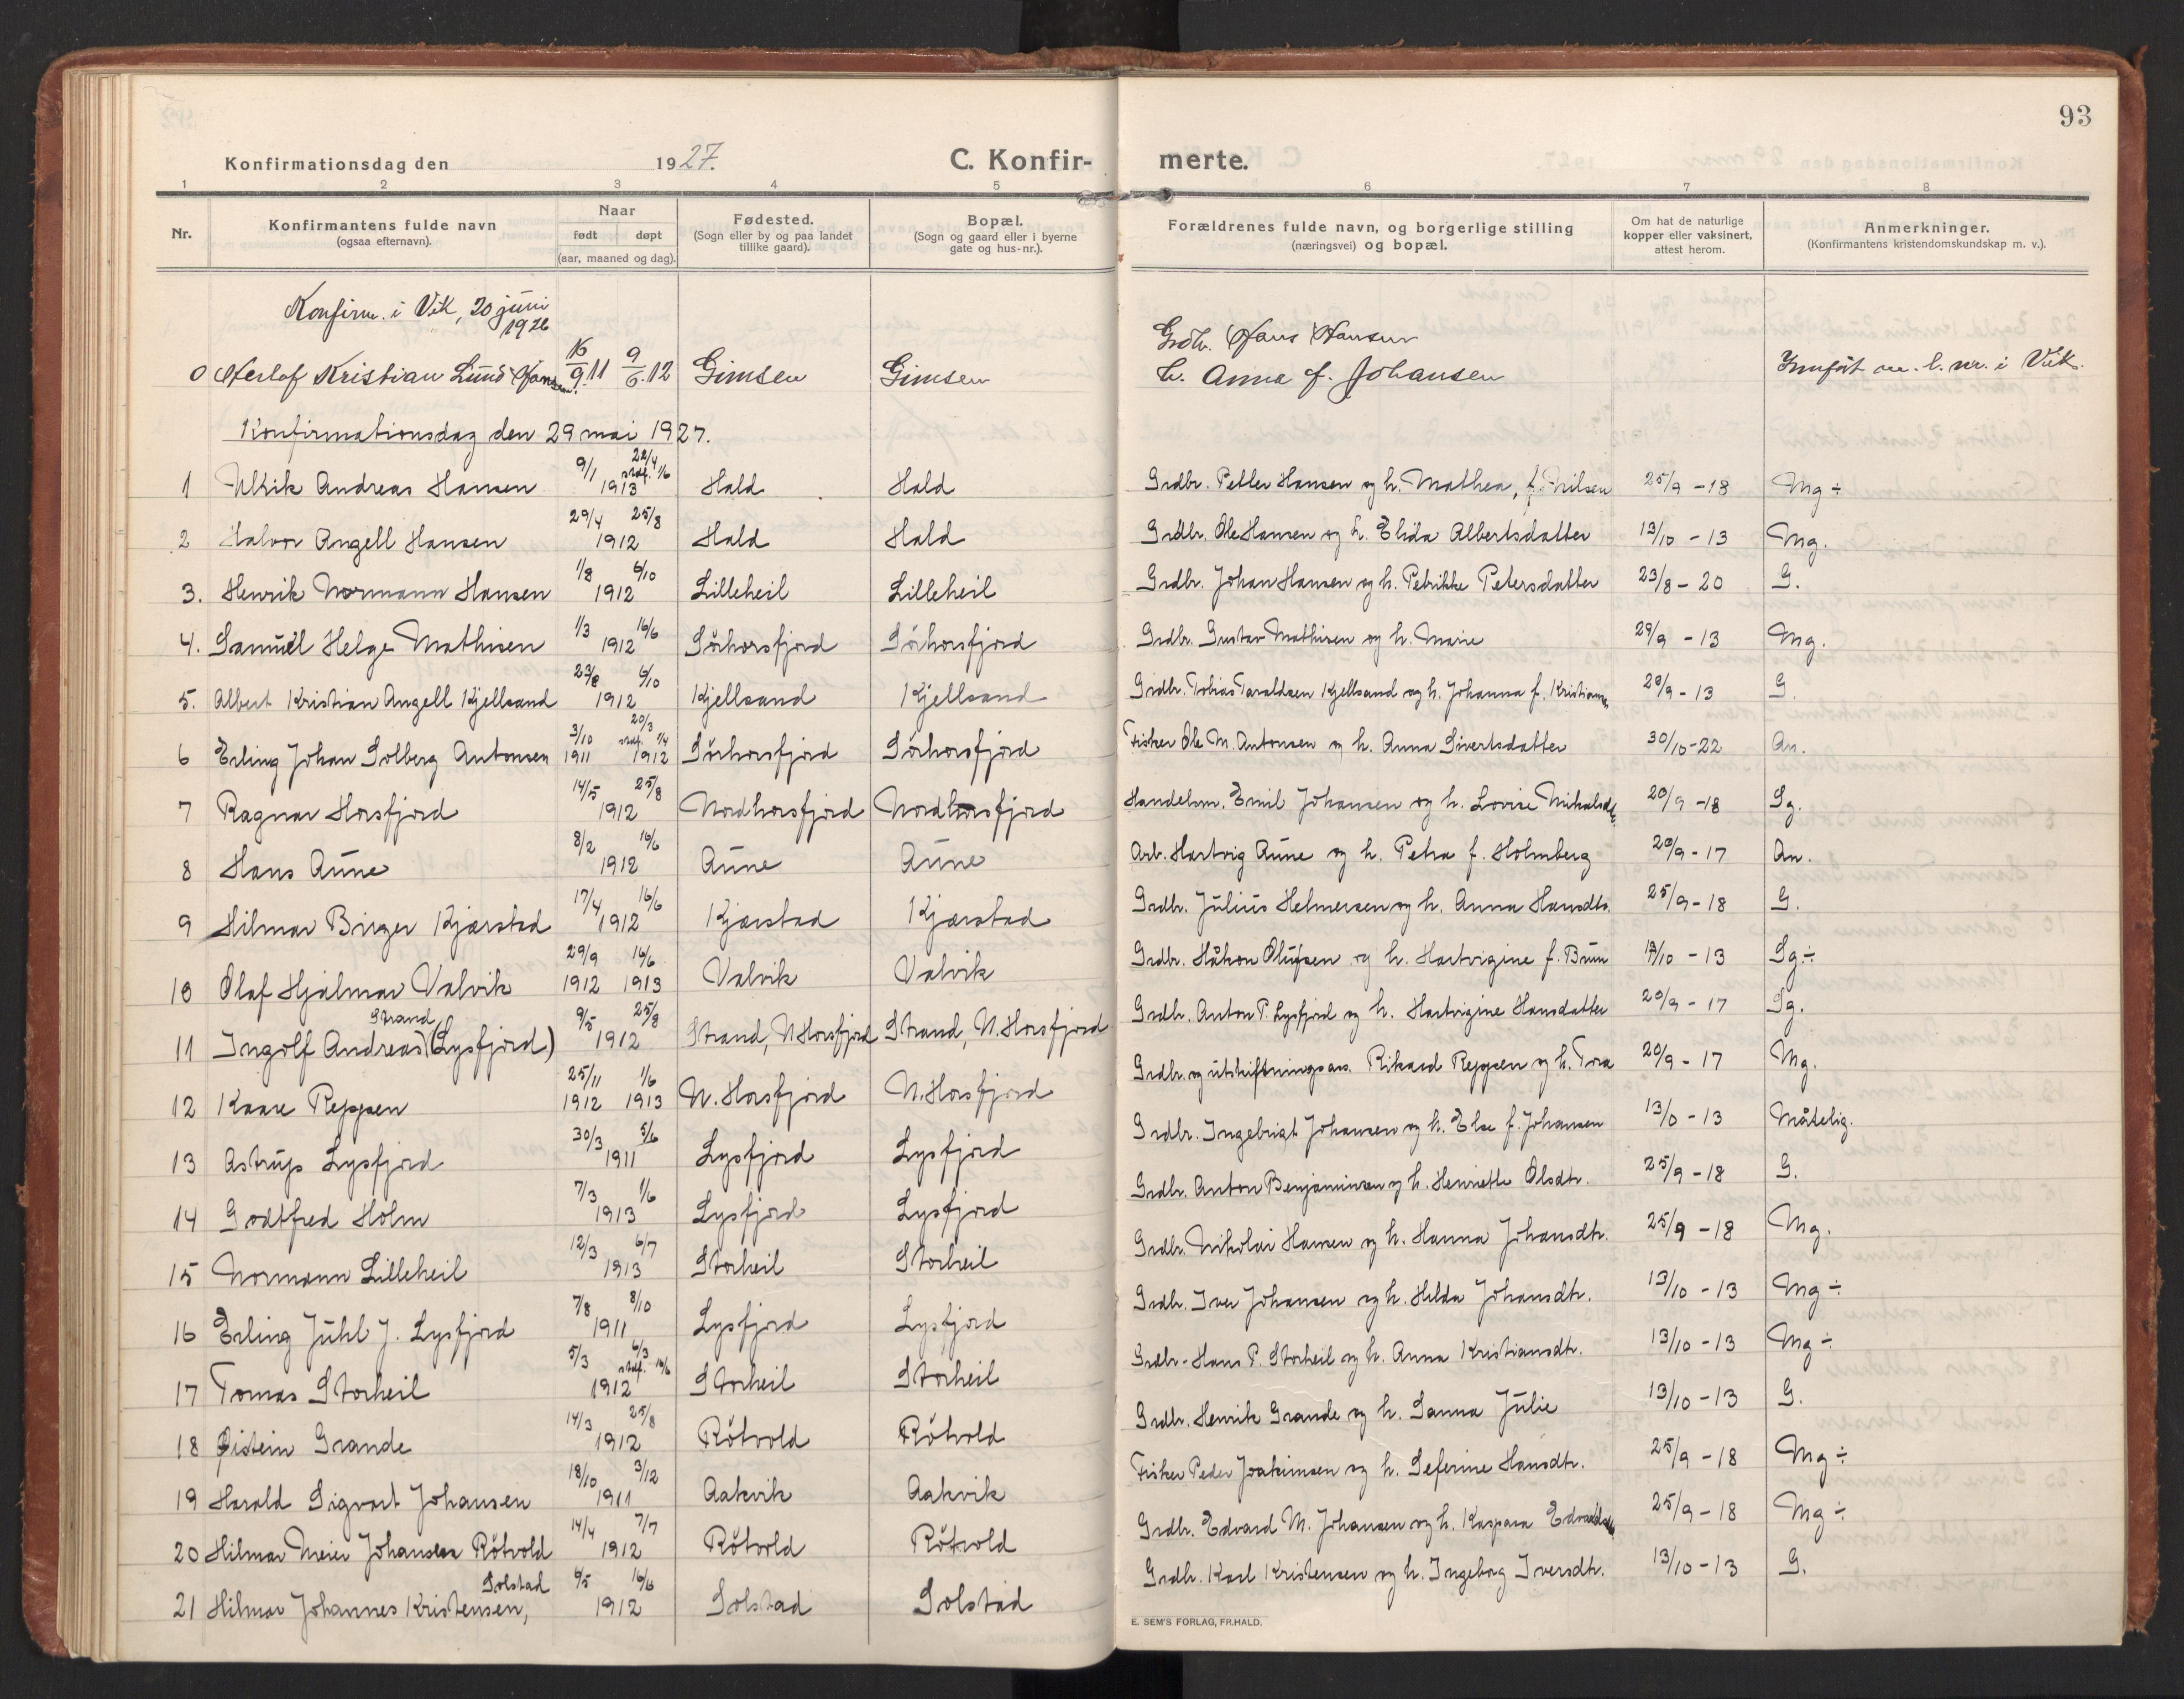 93
Konfirmationsdag den 1927. C. Konfirmerte.
1 2 3 4 5 6 7 8
Nr.
Konfirmantens fulde navn
(ogsaa efternavn).
Naar
født døpt
(aar, maaned og dag).
Fødested.
(Sogn eller by og paa landet
tillike gaard).
Bopæl.
(Sogn og gaard eller i byerne
gate og hus-nr.).
Forældrenes fulde navn, og borgerlige stilling
(næringsvei) og bopæl.
Om hat de naturlige
kopper eller vaksinert,
attest herom.
Anmerkninger.
(Konfirmantens kristendomskundskap m. v.).
Konfirm. i Vik, 20 juni
1926
Grdbr. Hans Hansen
0 Herlof Kristian Lund Hansen 16/9.11 9/6.12 Gimsen Gimsen h. Anna f. Johansen i Vik.
Konfirmationsdag den 29 mai 1927.
1 Ulrik Andreas Hansen 9/1 22/4 stdf. 1/6 1913 Hald Hald Grdbr. Petter Hansen og h. Mathea, f. Nilsen 25/9 - 18 Mg ÷
2 Halvor Angell Hansen 29/4 25/8 1912 Hald Hald Grdbr. Ole Hansen og h. Elida Albertsdatter 13/10 - 13 Mg.
3. Henrik Normann Hansen 1/8 6/10 1912 Lilleheil Lilleheil Grdbr. Johan Hansen og h. Petrikke Petersdatter 23/8 - 20 G.
4. Samuel Helge Mathisen 1/3 16/6 1912 Sörhorsfjord Sörhorsfjord Grdbr. Gustav Mathisen og h. Marie 29/9 - 13 Mg.
5. Albert Kristian Angell Kjellsand 23/8 6/10 1912 Kjellsand Kjellsand Grdbr. Tobias Taraldsen Kjellsand og h. Johanna f. Kristiansen 29/9 - 13 G.
6 Erling Johan Solberg Antonsen 3/10 1911 20/3 stdf. 1/4 1912 Sörhorsfjord Sörhorsfjord Fisker Ole M. Antonsen og h. Anna Sivertsdatter 30/10-22 An.
7 Ragnar Horsfjord 14/5 25/8 1912 Nordhorsfjord Nordhorsfjord Handelsm. Emil Johansen og h. Lovise 20/9 -18 Sg.
8 Hans Aune 8/2 16/6 1912 Aune Aune Arb. Hartvig Aune og h. Petra f. Holmberg 20/9 - 17 An.
9 Hilmar Birger Kjærstad 17/4 16/6 1912 Kjærstad Kjærstad Grdbr. Julius Helmersen og h. Anna Hansdtr. 25/9 - 18 G.
10 Olaf Hjalmar Valvik 29/9 1912 16/6 1913 Valvik Valvik Grdbr. Håkon Olufsen og h. Hartvigine f. Brun 13/10 - 13 Sg.÷
Strand
11 Ingolf Andreas (Lysfjord) 9/5 25/8 1912 Strand, N Horsfjord Strand, N. Horsfjord Grdbr. Anton P. Lysfjord og h. Hartvigine Hansdatter 20/9 - 17 Sg.
12 Kaare Reppen 25/11 1912 1/6 1913 N. Horsfjord N. Horsfjord Grdbr. og utskiftningsas. Rikard Reppen og h. Tora 20/9 - 17 Mg.
13 Astrup Lysfjord 30/3 5/6 1911 Lysfjord Lysfjord Grdbr. Ingebrigt Johansen og h. Else f. Johansen 13/0 - 13 Måtelig.
14 Godtfred Holm 7/3 1/6 1913 Lysfjord Lysfjord Grdbr. Anton Benjaminsen og h. Henriette Olsdtr. 25/9 - 18 G.
15 Normann Lilleheil 12/3 6/7 1913 Storheil Storheil Grdbr. Nikolai Hansen og h. Hanna Johansdtr. 25/9 - 18 Mg.
16 Erling Juhl J. Lysfjord 7/8 8/10 1911 Lysfjord Lysfjord Grdbr. Iver Johansen og h. Hilda Johansdtr. 13/10 - 13 Mg ÷
17 Tomas Storheil 5/3 6/3 stdf. 16/6 1912 Storheil Storheil Grdbr. Hans P. Storheil og h. Anna Kristiansdtr. 13/10 - 13 Mg ÷
18 Øistein Grande 14/3 25/8 1912 Rötvold Rötvold Grdbr. Henrik Grande og h. Sanna Julie 13/10 - 13 G.
19 Harald Sigvart Johansen 18/10 3/12 1911 Aakvik Aakvik Fisker Peder Joakimsen og h. Seferine Hansdtr. 25/9 - 18 Mg ÷
20 Hilmar Meier Johansen Rötvold 14/4 7/7 1912 Rötvold Rötvold Grdbr. Edvard M. Johansen og h. Kaspara 25/9 - 18 Mg ÷
Solstad
21 Hilmar Johannes Kristensen, 6/5 16/6 1912 Solstad Solstad Grdbr. Karl Kristensen og h. Ingeborg Iversdtr. 13/10 - 13 G.
E. SEM'S FORLAG, FR.HALD.